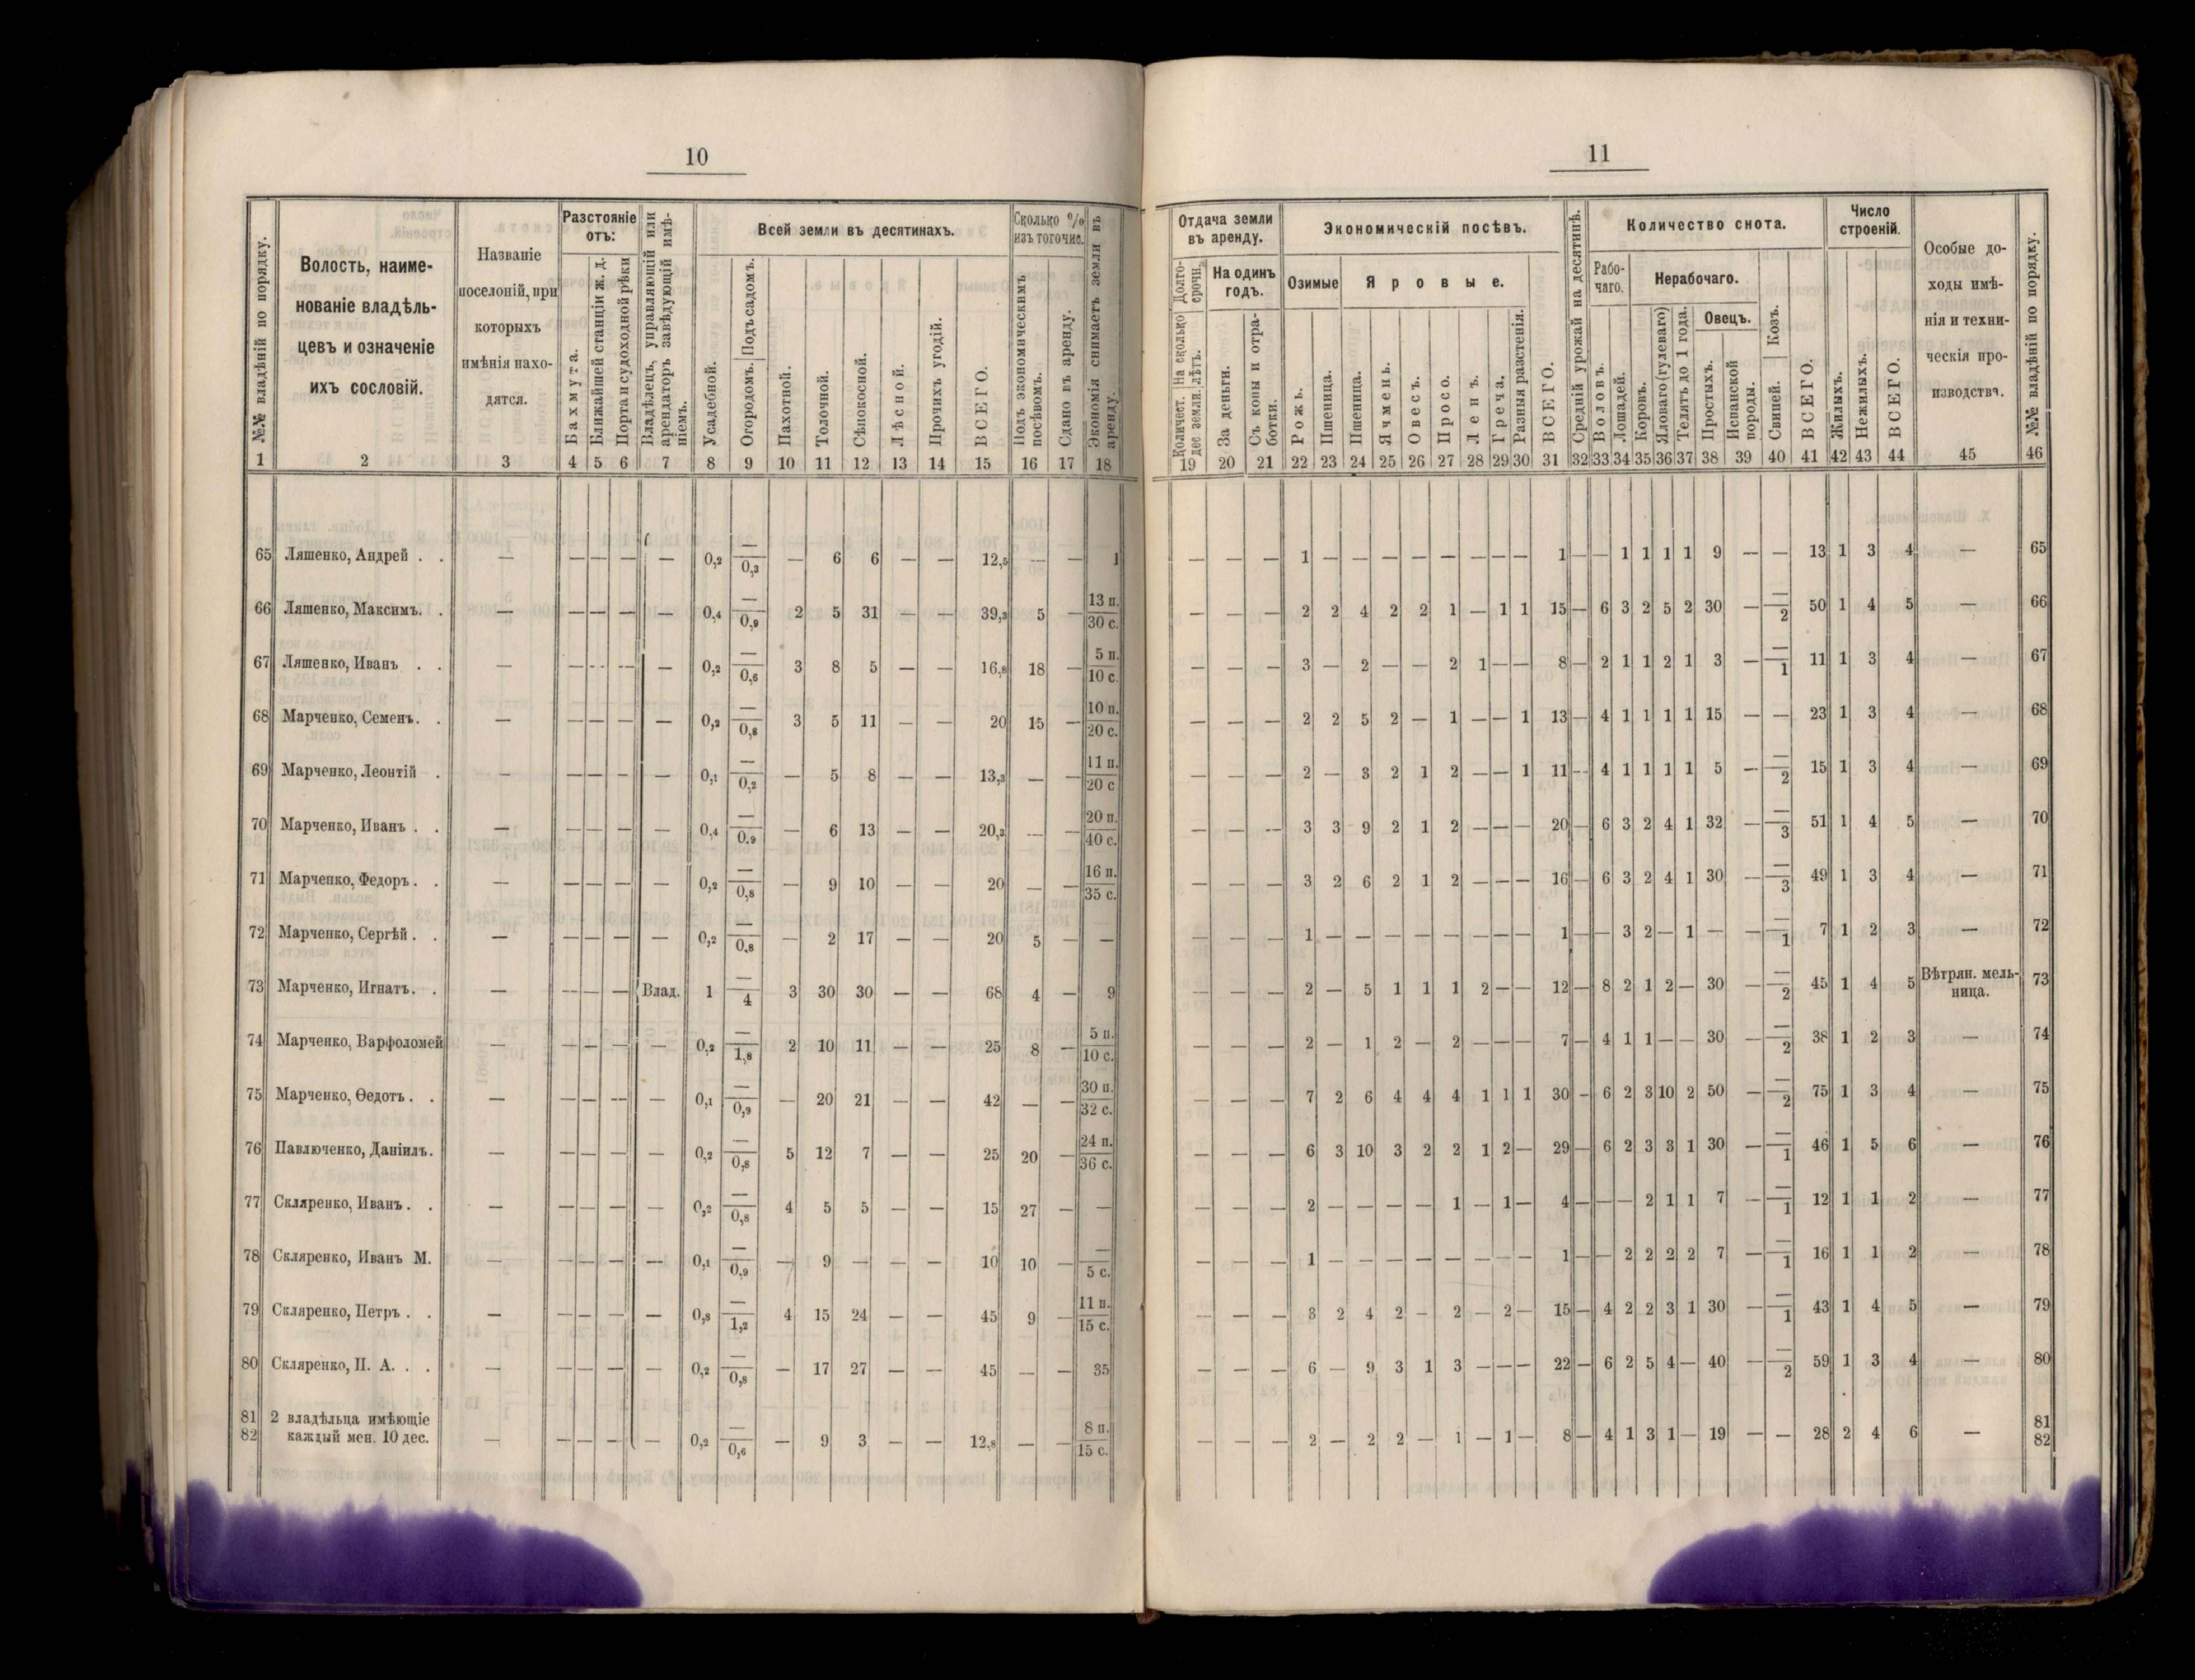 10
№№ владѣній по порядку.
Волость, наиме-
нованіе владѣль-
цевъ и означеніе
ихъ сословій.
Названіе
поселоній, при
которыхъ
имѣнія нахо-
дятся.
Разстояніе
отъ:
Бахмута.
Ближайшей станціи ж. д.
Порта и судоходной рѣки
Владѣлецъ, управляющій или
арендаторъ завѣдующій имѣ-
ніемъ.
Всей земли въ десятинахъ.
Усадебной.
Огородомъ. Подъ садомъ.
Пахотной.
Толочной.
Сѣнокосной.
Лѣсной.
Прочихъ угодій.
ВСЕГО.
Сколько %
изъ того числ.
Подъ экономическимъ
посѣвомъ.
Сдано въ аренду.
Экономія снимаетъ земли въ
аренду.
1 2 3 4 5 6 7 8 9 10 11 12 13 14 15 16 17 18
65 Ляшенко, Андрей . . — — — — — 0,2 —/0,3 — 6 6 — — 12,5 — — 1
66 Ляшенко, Максимъ. . — — — — — 0,4 —/0,9 2 5 31 — — 39,3 5 — 13 п./30 с.
67 Ляшенко, Иванъ . . — — — — — 0,2 —/0,6 3 8 5 — — 16,8 18 — 5 п./10 с.
68 Марченко, Семенъ. . — — — — — 0,2 —/0,8 3 5 11 — — 20 15 — 10 п./20 с.
69 Марченко, Леонтій . — — — — — 0,1 —/0,2 — 5 8 — — 13,3 — — 11 п./20 с
70 Марченко, Иванъ . . — — — — — 0,4 —/0,9 — 6 13 — — 20,3 — — 20 п./40 с.
71 Марченко, Федоръ. . — — — — — 0,2 —/0,8 — 9 10 — — 20 — — 16 п./35 с.
72 Марченко, Сергѣй. . — — — — — 0,2 —/0,8 — 2 17 — — 20 5 — —
73 Марченко, Игнатъ. . — — — — Влад. 1 —/4 3 30 30 — — 68 4 — 9
74 Марченко, Варфоломей — — — — — 0,2 —/1,8 2 10 11 — — 25 8 — 5 п./10 с.
75 Марченко, Ѳедотъ. . — — — — — 0,1 —/0,9 — 20 21 — — 42 — — 30 п./32 с.
76 Павлюченко, Даніилъ. — — — — — 0,2 —/0,8 5 12 7 — — 25 20 — 24 п./36 с.
77 Скляренко, Иванъ. . — — — — — 0,2 —/0,8 4 5 5 — — 15 27 — —
78 Скляренко, Иванъ М. — — — — — 0,1 —/0,9 — 9 — — — 10 10 — —/5 с.
79 Скляренко, Петръ . . — — — — — 0,8 —/1,2 4 15 24 — — 45 9 — 11 п./15 с.
80 Скляренко, П. А. . . — — — — — 0,2 —/0,8 — 17 27 — — 45 — — 35
81 2 владѣльца имѣющіе
82 каждый мен. 10 дес. — — — — — 0,2 —/0,6 — 9 3 — — 12,8 — — 8 п./15 с.
11
Отдача земли
въ аренду.
Долго-
срочн.
Количест. На сколько
дес земли. лѣтъ.
На одинъ
годъ.
За деньги.
Съ копы и отра-
ботки.
Экономическій посѣвъ.
Озимые
Яровые.
Рожь.
Пшеница.
Пшеница.
Ячмень.
Овесъ.
Просо.
Ленъ.
Греча.
Разныя растенія.
ВСЕГО.
Средній урожай на десятинѣ.
Количество скота.
Рабо-
чаго.
Нерабочаго.
Воловъ.
Лошадей.
Коровъ.
Яловаго (гулеваго)
Телятъ до 1 года.
Овецъ.
Простыхъ.
Испанской
породы.
Свиней. Козъ.
ВСЕГО.
Число
строеній.
Жилыхъ.
Нежилыхъ.
ВСЕГО.
Особые до-
ходы имѣ-
нія и техни-
ческія про-
изводств.
№№ владѣній по порядку.
19 20 21 22 23 24 25 26 27 28 29 30 31 32 33 34 35 36 37 38 39 40 41 42 43 44 45 46
— — — 1 — — — — — — — — 1 — — 1 1 1 1 9 — — 13 1 3 4 — 65
— — — 2 2 4 2 2 1 — 1 1 15 — 6 3 2 5 2 30 — —/2 50 1 4 5 — 66
— — — 3 — 2 — — 2 1 — — 8 — 2 1 1 2 1 3 — —/1 11 1 3 4 — 67
— — — 2 2 5 2 — 1 — — 1 13 — 4 1 1 1 1 15 — — 23 1 3 4 — 68
— — — 2 — 3 2 1 2 — — 1 11 — 4 1 1 1 1 5 — —/2 15 1 3 4 — 69
— — — 3 3 9 2 1 2 — — — 20 — 6 3 2 4 1 32 — —/3 51 1 4 5 — 70
— — — 3 2 6 2 1 2 — — — 16 — 6 3 2 4 1 30 — —/3 49 1 3 4 — 71
— — — 1 — — — — — — — — 1 — — 3 2 — 1 — — —/1 7 1 2 3 — 72
— — — 2 — 5 1 1 1 2 — — 12 — 8 2 1 2 — 30 — —/2 45 1 4 5 Вѣтрян. мель-
ница. 73
— — — 2 — 1 2 — 2 — — — 7 — 4 1 1 — — 30 — —/2 38 1 2 3 — 74
— — — 7 2 6 4 4 4 1 1 1 30 — 6 2 3 10 2 50 — —/2 75 1 3 4 — 75
— — — 6 3 10 3 2 2 1 2 — 29 — 6 2 3 3 1 30 — —/1 46 1 5 6 — 76
— — — 2 — — — — 1 — 1 — 4 — — — 2 1 1 7 — —/1 12 1 1 2 — 77
— — — 1 — — — — — — — — 1 — — 2 2 2 2 7 — —/1 16 1 1 2 — 78
— — — 3 2 4 2 — 2 — 2 — 15 — 4 2 2 3 1 30 — —/1 43 1 4 5 — 79
— — — 6 — 9 3 1 3 — — — 22 — 6 2 5 4 — 40 — —/2 59 1 3 4 — 80
— — — 2 — 2 2 — 1 — 1 — 8 — 4 1 3 1 — 19 — — 28 2 4 6 — 81
82